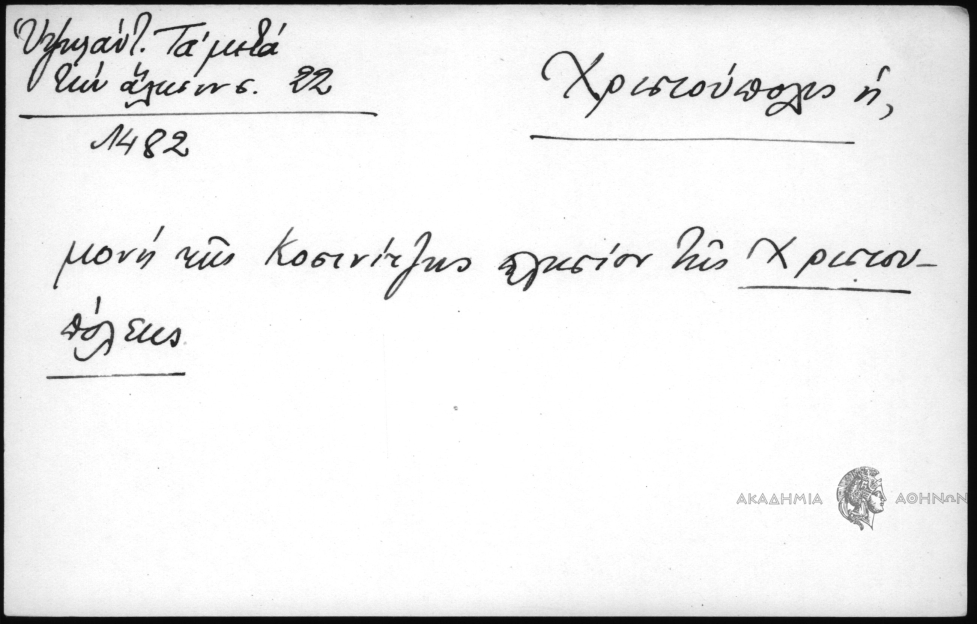 Ὑψηλάντ. Τά μετά
τήν ἅλωσιν σ. 22
1482
Χριστούπολις ἡ,
μονή τῆς Κοσινίτζης πλησίον τῆς Χριστου-
πόλεως
ΑΚΑΔΗΜΙΑ ΑΘΗΝΩΝ